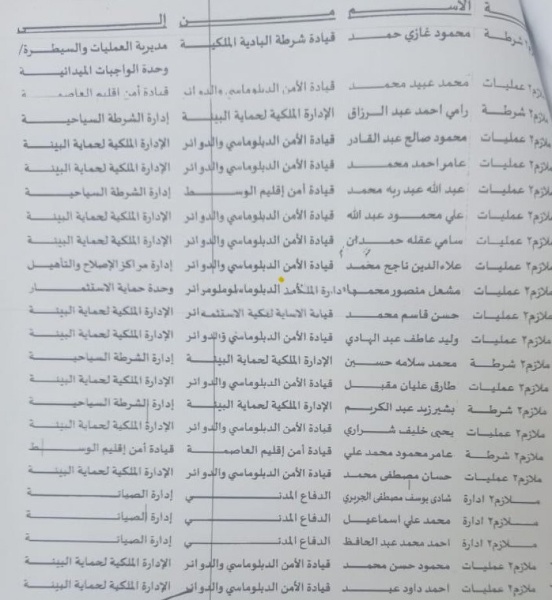 ـة الاســـــم مـــــن إلـــــى
ملازم٢ شرطة محمود غازي حمـــد قيادة شرطة البادية الملكية مديرية العمليات والسيطرة/
وحدة الواجبات الميدانية
ملازم٢ عمليات محمد عبيد محمـــد قيادة الأمن الدبلوماسي والدوائر قيادة أمن إقليم العاصمة
ملازم٢ شرطة رامي احمد عبد الرزاق الإدارة الملكية لحماية البيئة إدارة الشرطة السياحية
ملازم٢ عمليات محمود صالح عبد القادر قيادة الأمن الدبلوماسي والدوائر الإدارة الملكية لحماية البيئة
ملازم٢ عمليات عامر احمد محمـــد قيادة الأمن الدبلوماسي والدوائر الإدارة الملكية لحماية البيئة
ملازم٢ عمليات عبد الله عبد ربه محمد قيادة أمن إقليم الوســـط إدارة الشرطة السياحية
ملازم٢ عمليات علي محمـــود عبد الله قيادة الأمن الدبلوماسي والدوائر الإدارة الملكية لحماية البيئة
ملازم٢ عمليات سامي عقله حمـــدان قيادة الأمن الدبلوماسي والدوائر الإدارة الملكية لحماية البيئة
ملازم٢ عمليات علاءالدين ناجح محمد قيادة الأمن الدبلوماسي والدوائر إدارة مراكز الإصلاح والتأهيل
ملازم٢ عمليات مشعل منصور وحدة حماية الاستثمار
ملازم٢ عمليات حسن قاسم محمـــد الإدارة الملكية لحماية البيئة
ملازم٢ عمليات وليد عاطف عبد الهادي قيادة الأمن الدبلوماسي والدوائر الإدارة الملكية لحماية البيئة
ملازم٢ شرطة محمد سلامه حســـين الإدارة الملكية لحماية البيئة إدارة الشرطة السياحية
ملازم٢ عمليات طارق عليان مقبـــل قيادة الأمن الدبلوماسي والدوائر الإدارة الملكية لحماية البيئة
ملازم٢ شرطة بشير زيد عبد الكريم الإدارة الملكية لحماية البيئة إدارة الشرطة السياحية
ملازم٢ عمليات يحيى خليف شـــراري قيادة الأمن الدبلوماسي والدوائر الإدارة الملكية لحماية البيئة
ملازم٢ شرطة عامر محمود محمد علي قيادة أمن إقليم العاصمة قيادة أمن إقليم الوســـط
ملازم٢ عمليات حسان مصطفى محمد قيادة الأمن الدبلوماسي والدوائر الإدارة الملكية لحماية البيئة
مـــلازم٢ ادارة شادي يوسف مصطفى الجريري الدفاع المدنـــي إدارة الصيانـــة
مـــلازم٢ ادارة محمد علي اسماعيـــل الدفاع المدنـــي إدارة الصيانـــة
مـــلازم٢ ادارة احمد محمد عبد الحافظ الدفاع المدنـــي إدارة الصيانـــة
ملازم٢ عمليات محمود حسن محمـــد قيادة الأمن الدبلوماسي والدوائر الإدارة الملكية لحماية البيئة
ملازم٢ عمليات احمد داود عيـــد قيادة الأمن الدبلوماسي والدوائر الإدارة الملكية لحماية البيئة